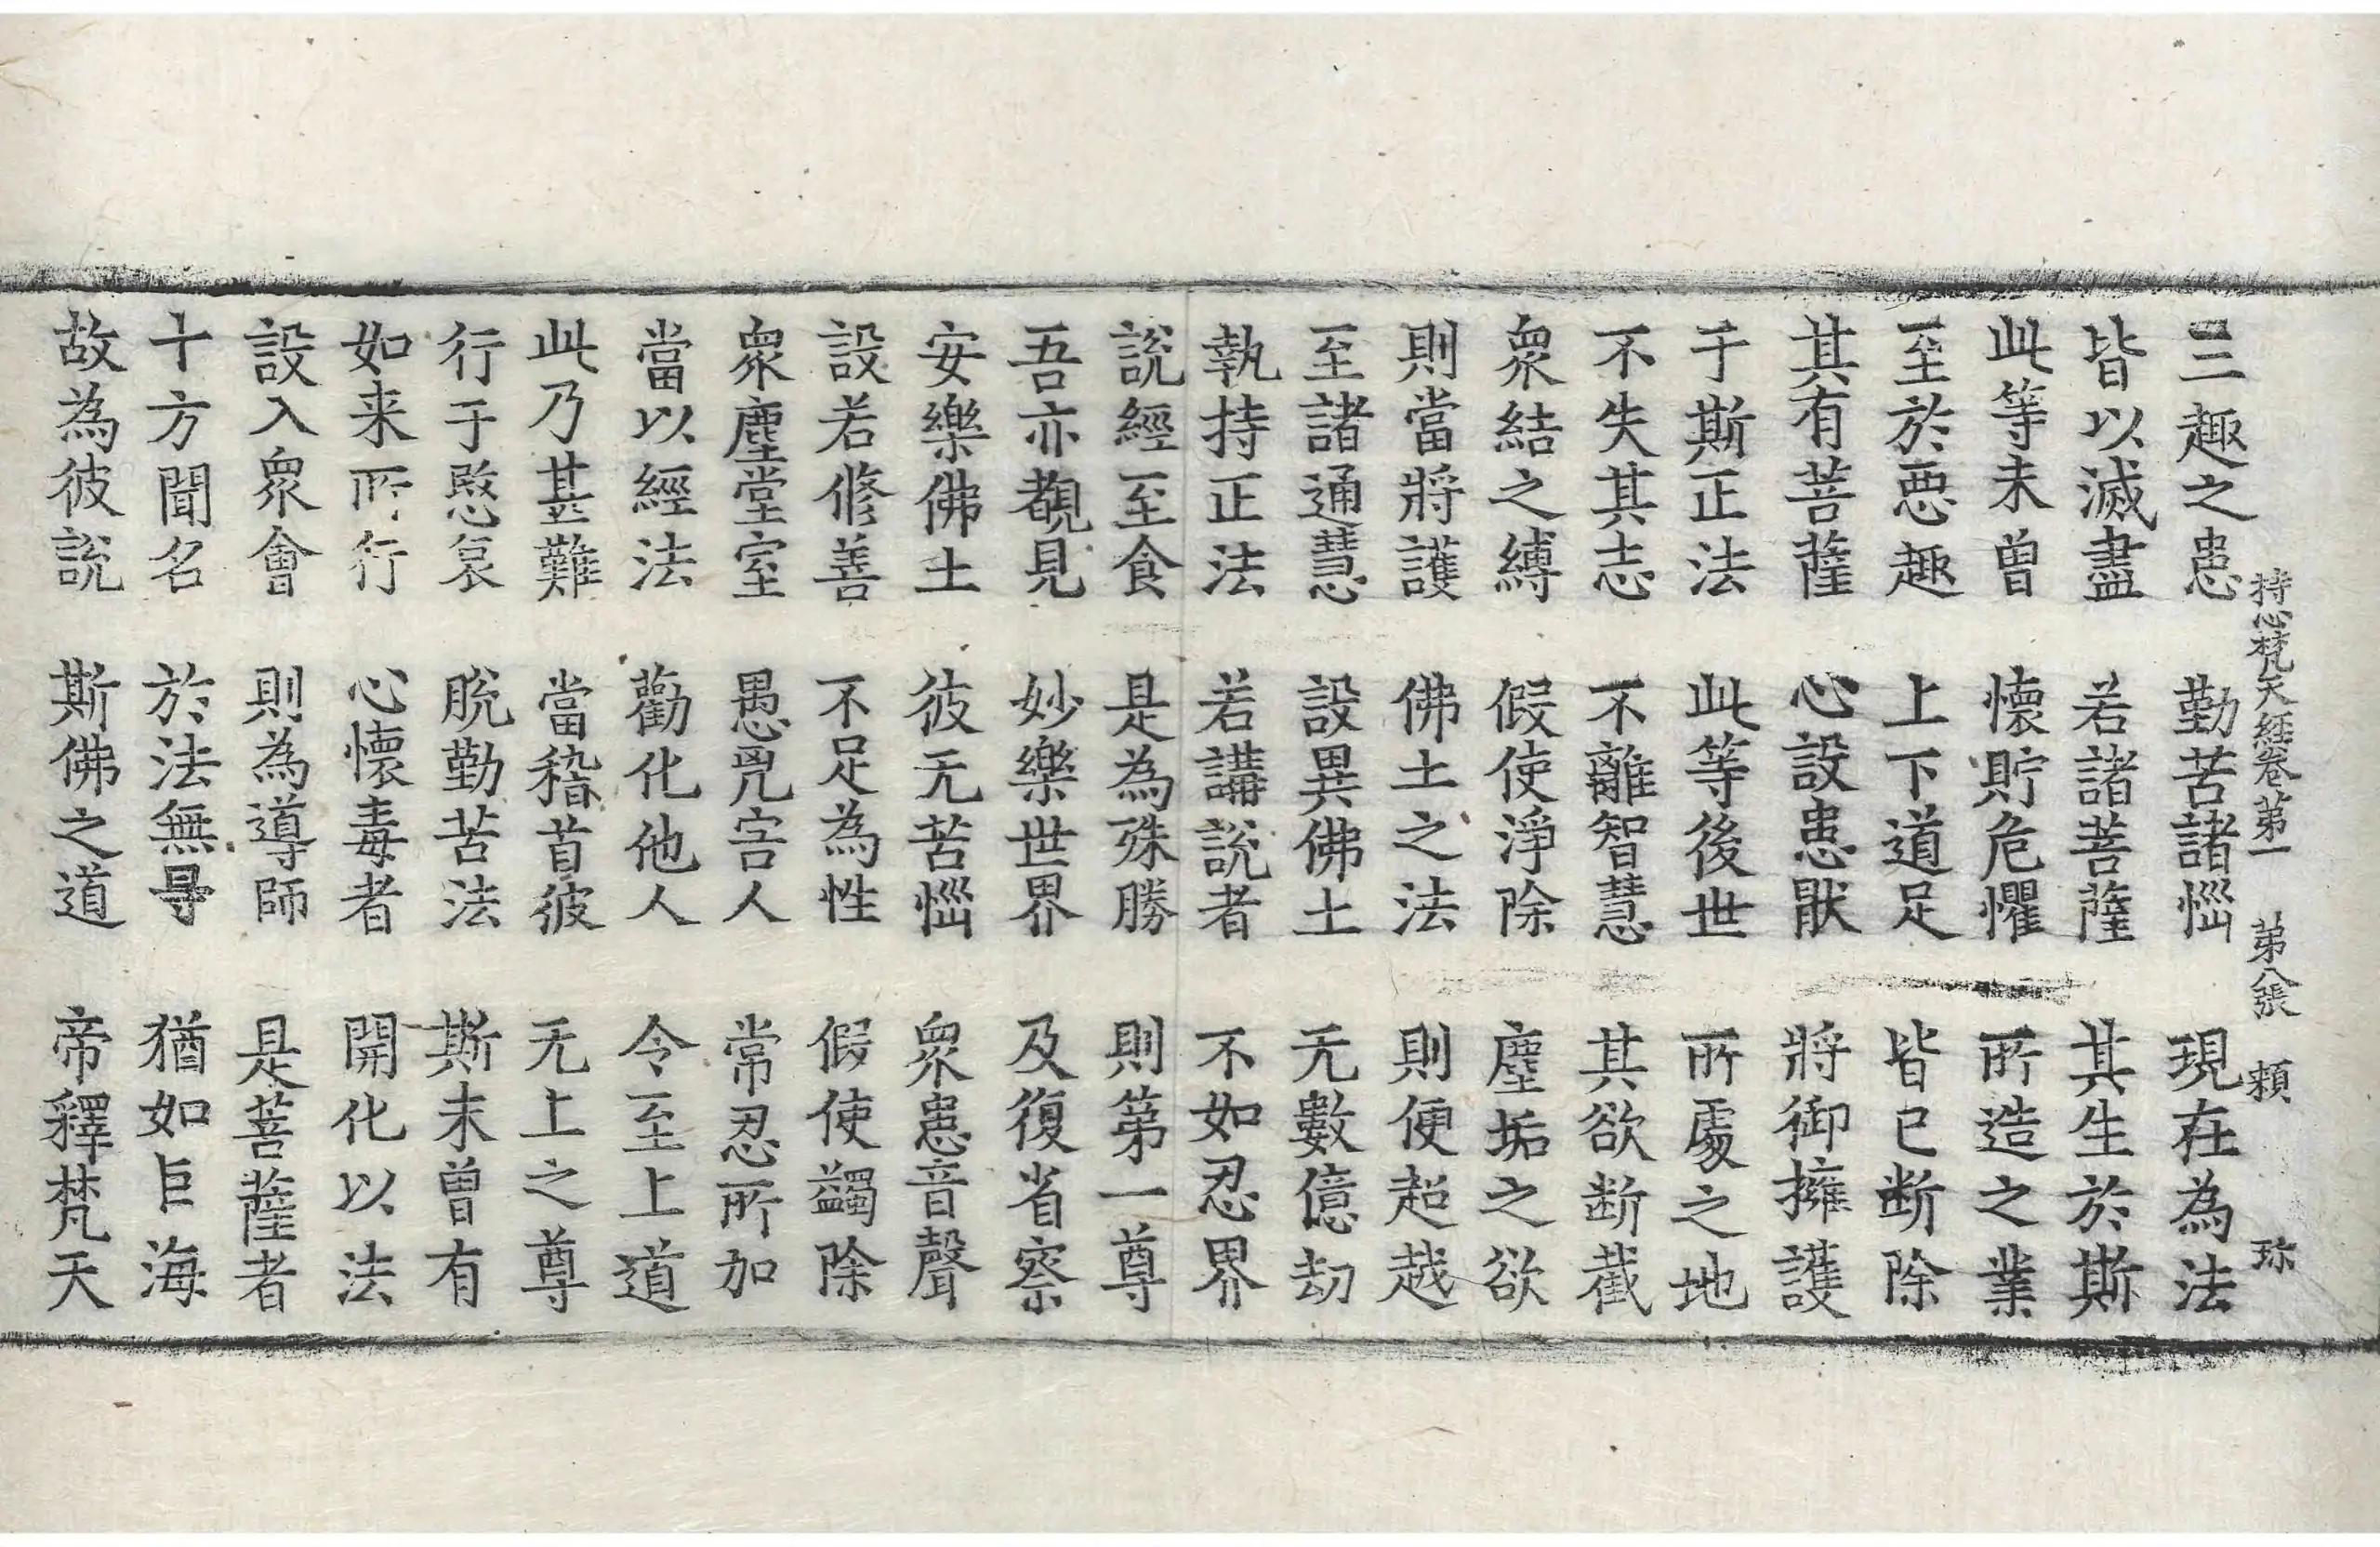 持心梵天經卷第一 第八張 頼 珎
三趣之患 勤苦諸惱 現在為法
皆以滅盡 若諸菩薩 其生於斯
此等未曾 懷貯危懼 所造之業
至於惡趣 上下道足 皆已断除
其有菩薩 心設患猒 將御擁護
于斯正法 此等後世 所處之地
不失其志 不離智慧 其欲断截
衆結之縛 假使淨除 塵垢之欲
則當將護 佛土之法 則便超越
至諸通慧 設異佛土 无數億劫
執持正法 若講說者 不如忍界
說經至食 是為殊勝 則第一尊
吾亦覩見 妙樂世界 及復省察
安樂佛土 彼无苦惱 衆患音聲
設若修善 不足為性 假使蠲除
衆塵堂室 愚罵害人 常忍所加
當以經法 勸化他人 令至上道
此乃甚難 當稽首彼 无上之尊
行于愍哀 脫勤苦法 斯未曾有
如来所行 心懷毒者 開化以法
設入衆會 則為導師 是菩薩者
十方聞名 於法無㝵 猶如巨海
故為彼說 斯佛之道 帝釋梵天